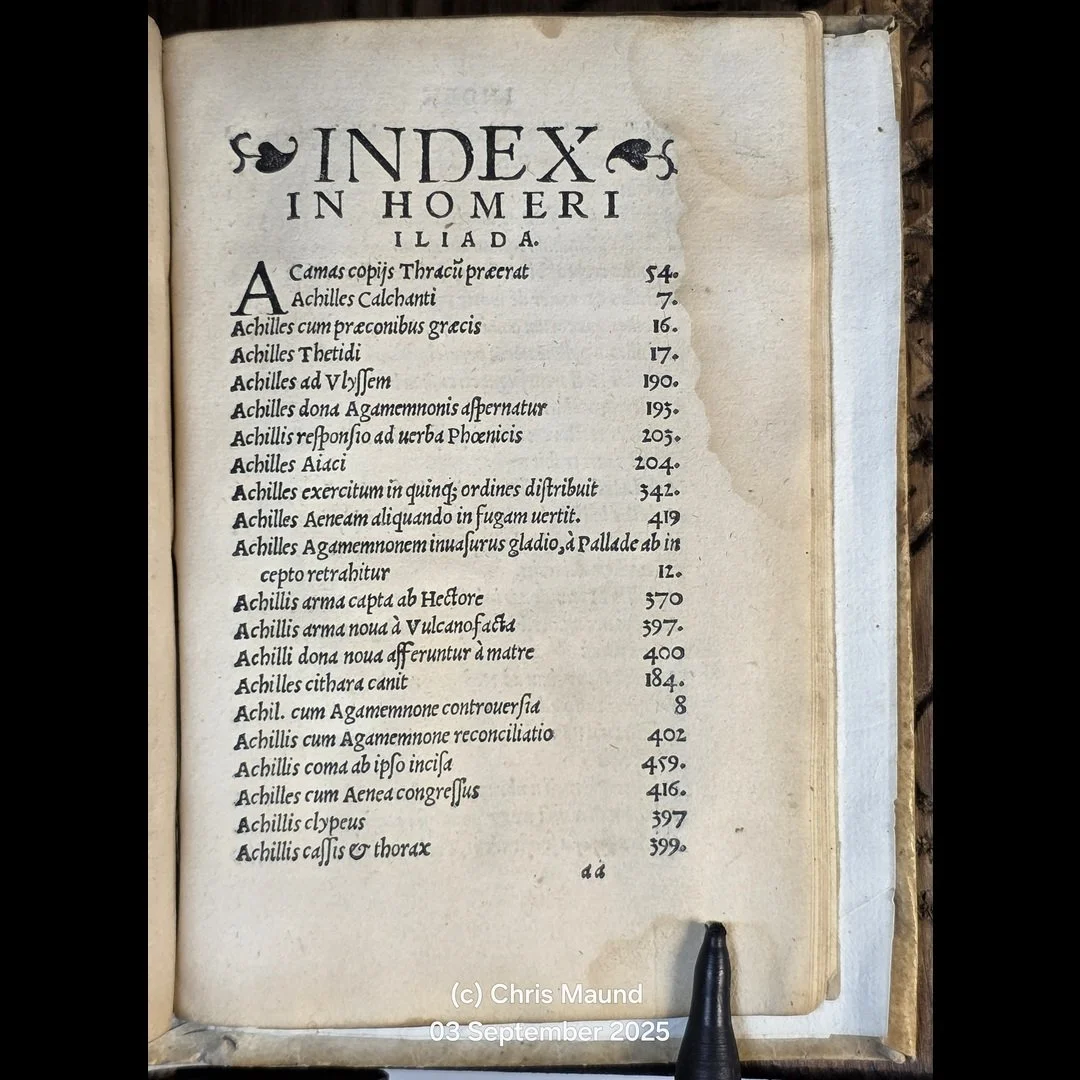 INDEX
IN HOMERI
ILIADA.
ACamas copijs Thracũ præerat 54.
Achilles Calchanti 7.
Achilles cum præconibus græcis 16.
Achilles Thetidi 17.
Achilles ad Vlyſſem 190.
Achilles dona Agamemnonis aſpernatur 195.
Achillis reſponſio ad uerba Phœnicis 203.
Achilles Aiaci 204.
Achilles exercitum in quinq; ordines diſtribuit 342.
Achilles Aeneam aliquando in fugam uertit. 419
Achilles Agamemnonem inuaſurus gladio, à Pallade ab in
cepto retrahitur 12.
Achillis arma capta ab Hectore 370
Achillis arma noua à Vulcano facta 397.
Achilli dona noua afferuntur à matre 400
Achilles cithara canit 184.
Achil. cum Agamemnone controuerſia 8
Achillis cum Agamemnone reconciliatio 402
Achillis coma ab ipſo inciſa 459.
Achilles cum Aenea congreſſus 416.
Achillis clypeus 397
Achillis caſſis & thorax 399.
aa
(c) Chris Maund
03 September 2025